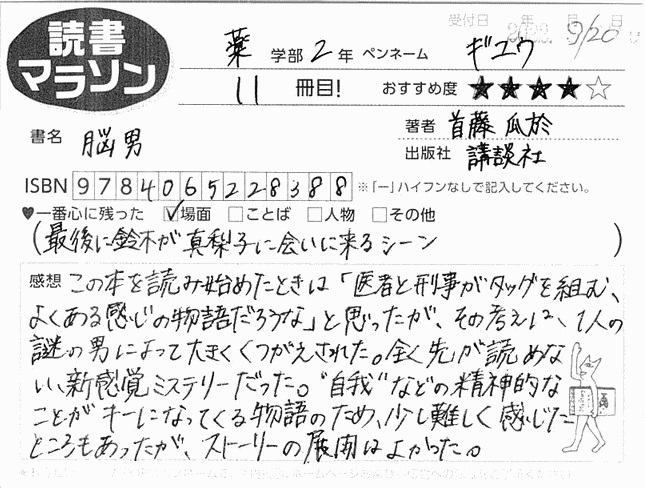 読書
マラソン
受付日 年 月 日
9/20
薬 学部 2 年 ペンネーム ギユウ
11 冊目! おすすめ度 ★★★★☆
書名 脳男
著者 首藤瓜於
出版社 講談社
ISBN 9784065228388 ※「ー」ハイフンなしで記入してください。
♥一番心に残った ☑場面 □ことば □人物 □その他
(最後に鈴木が真梨子に会いに来るシーン )
感想 この本を読み始めたときは「医者と刑事がタッグを組む、
よくある感じの物語だろうな」と思ったが、その考えは、1人の
謎の男によって大きくくつがえされた。全く先が読めな
い、新感覚ミステリーだった。"自我"などの精神的な
ことがキーになってくる物語のため、少し難しく感じた
ところもあったが、ストーリーの展開はよかった。